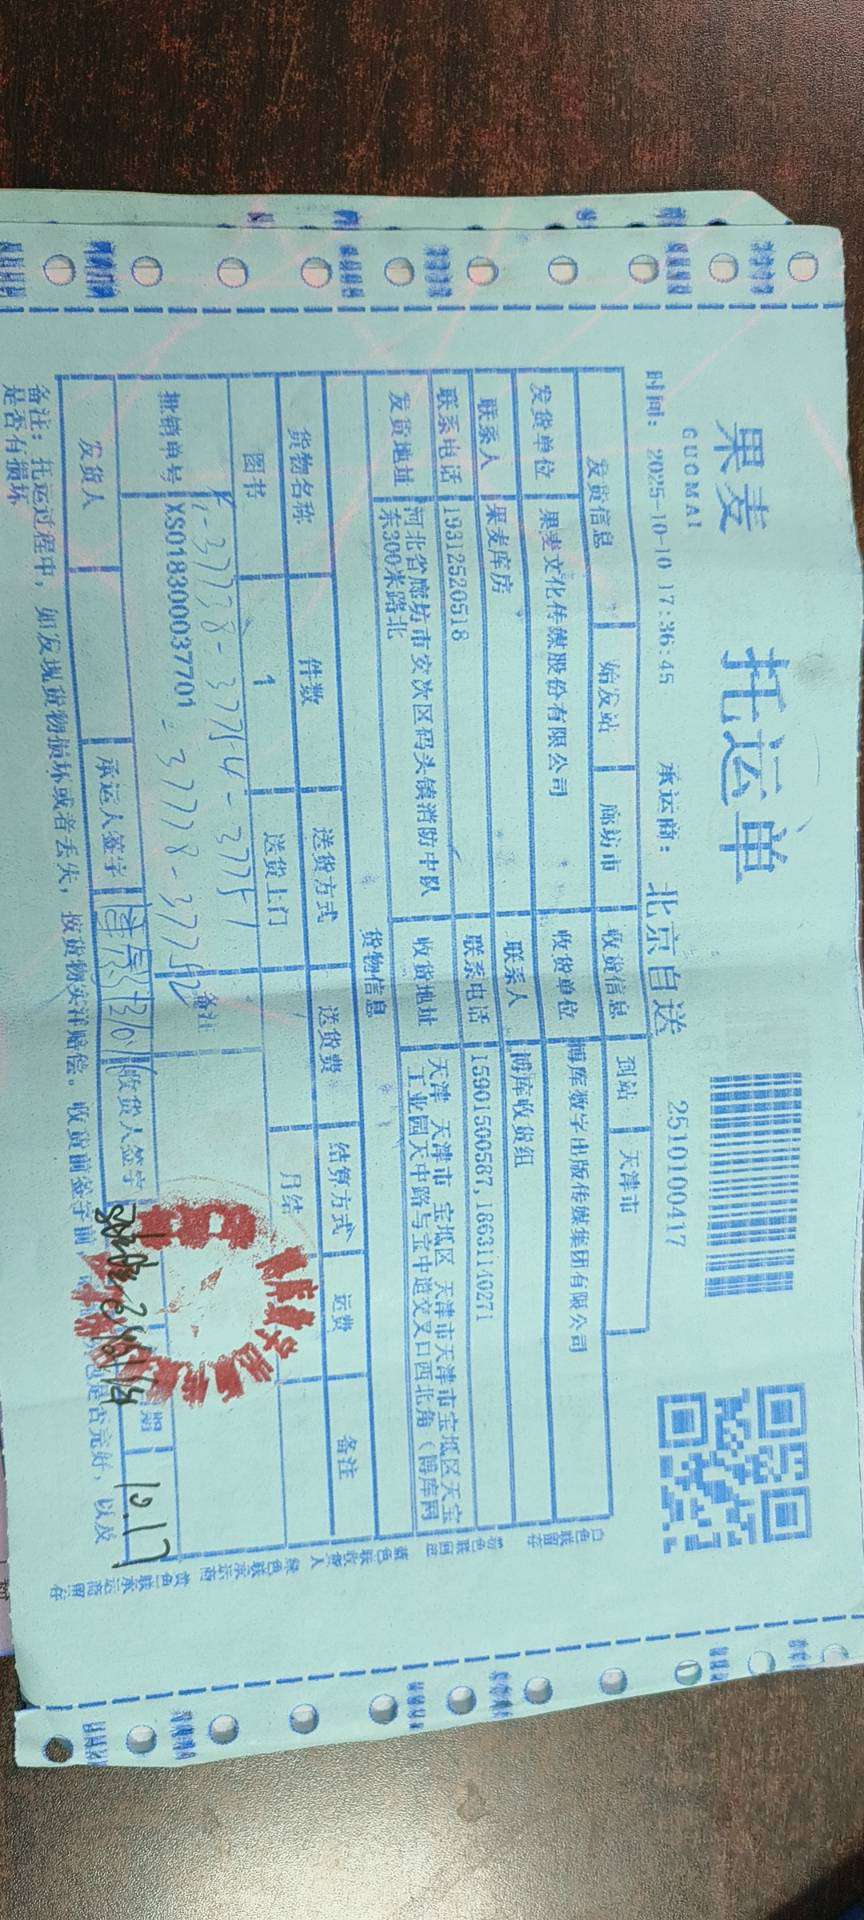 果麦
GUOMAI
托运单
2510100417
时间: 2025-10-10 17:36:45 承运商: 北京自送
发货信息 始发站 廊坊市 收货信息 到站 天津市
发货单位 果麦文化传媒股份有限公司 收货单位 博库数字出版传媒集团有限公司
联系人 果麦库房 联系人 博库收货组
联系电话 19312520518 联系电话 15901500587,18631140271
发货地址 河北省廊坊市安次区码头镇消防中队东300米路北 收货地址 天津 天津市 宝坻区 天津市天津市宝坻区天宝工业园天中路与宝中道交叉口西北角(博库网
货物信息
货物名称 件数 送货方式 送货费 结算方式 运费 备注
图书 1 送货上门 月结
批销单号 XS018300037701 备注
发货人 承运人签字 收货人签字 10.17
备注: 托运过程中, 如发现货物损坏或者丢失, 按货物实洋赔偿。收货前签字前, 是否完好, 以及
是否有损坏
白色联留存
粉色联回单
蓝色联收货人
绿色联承运商
黄色联承运商留存